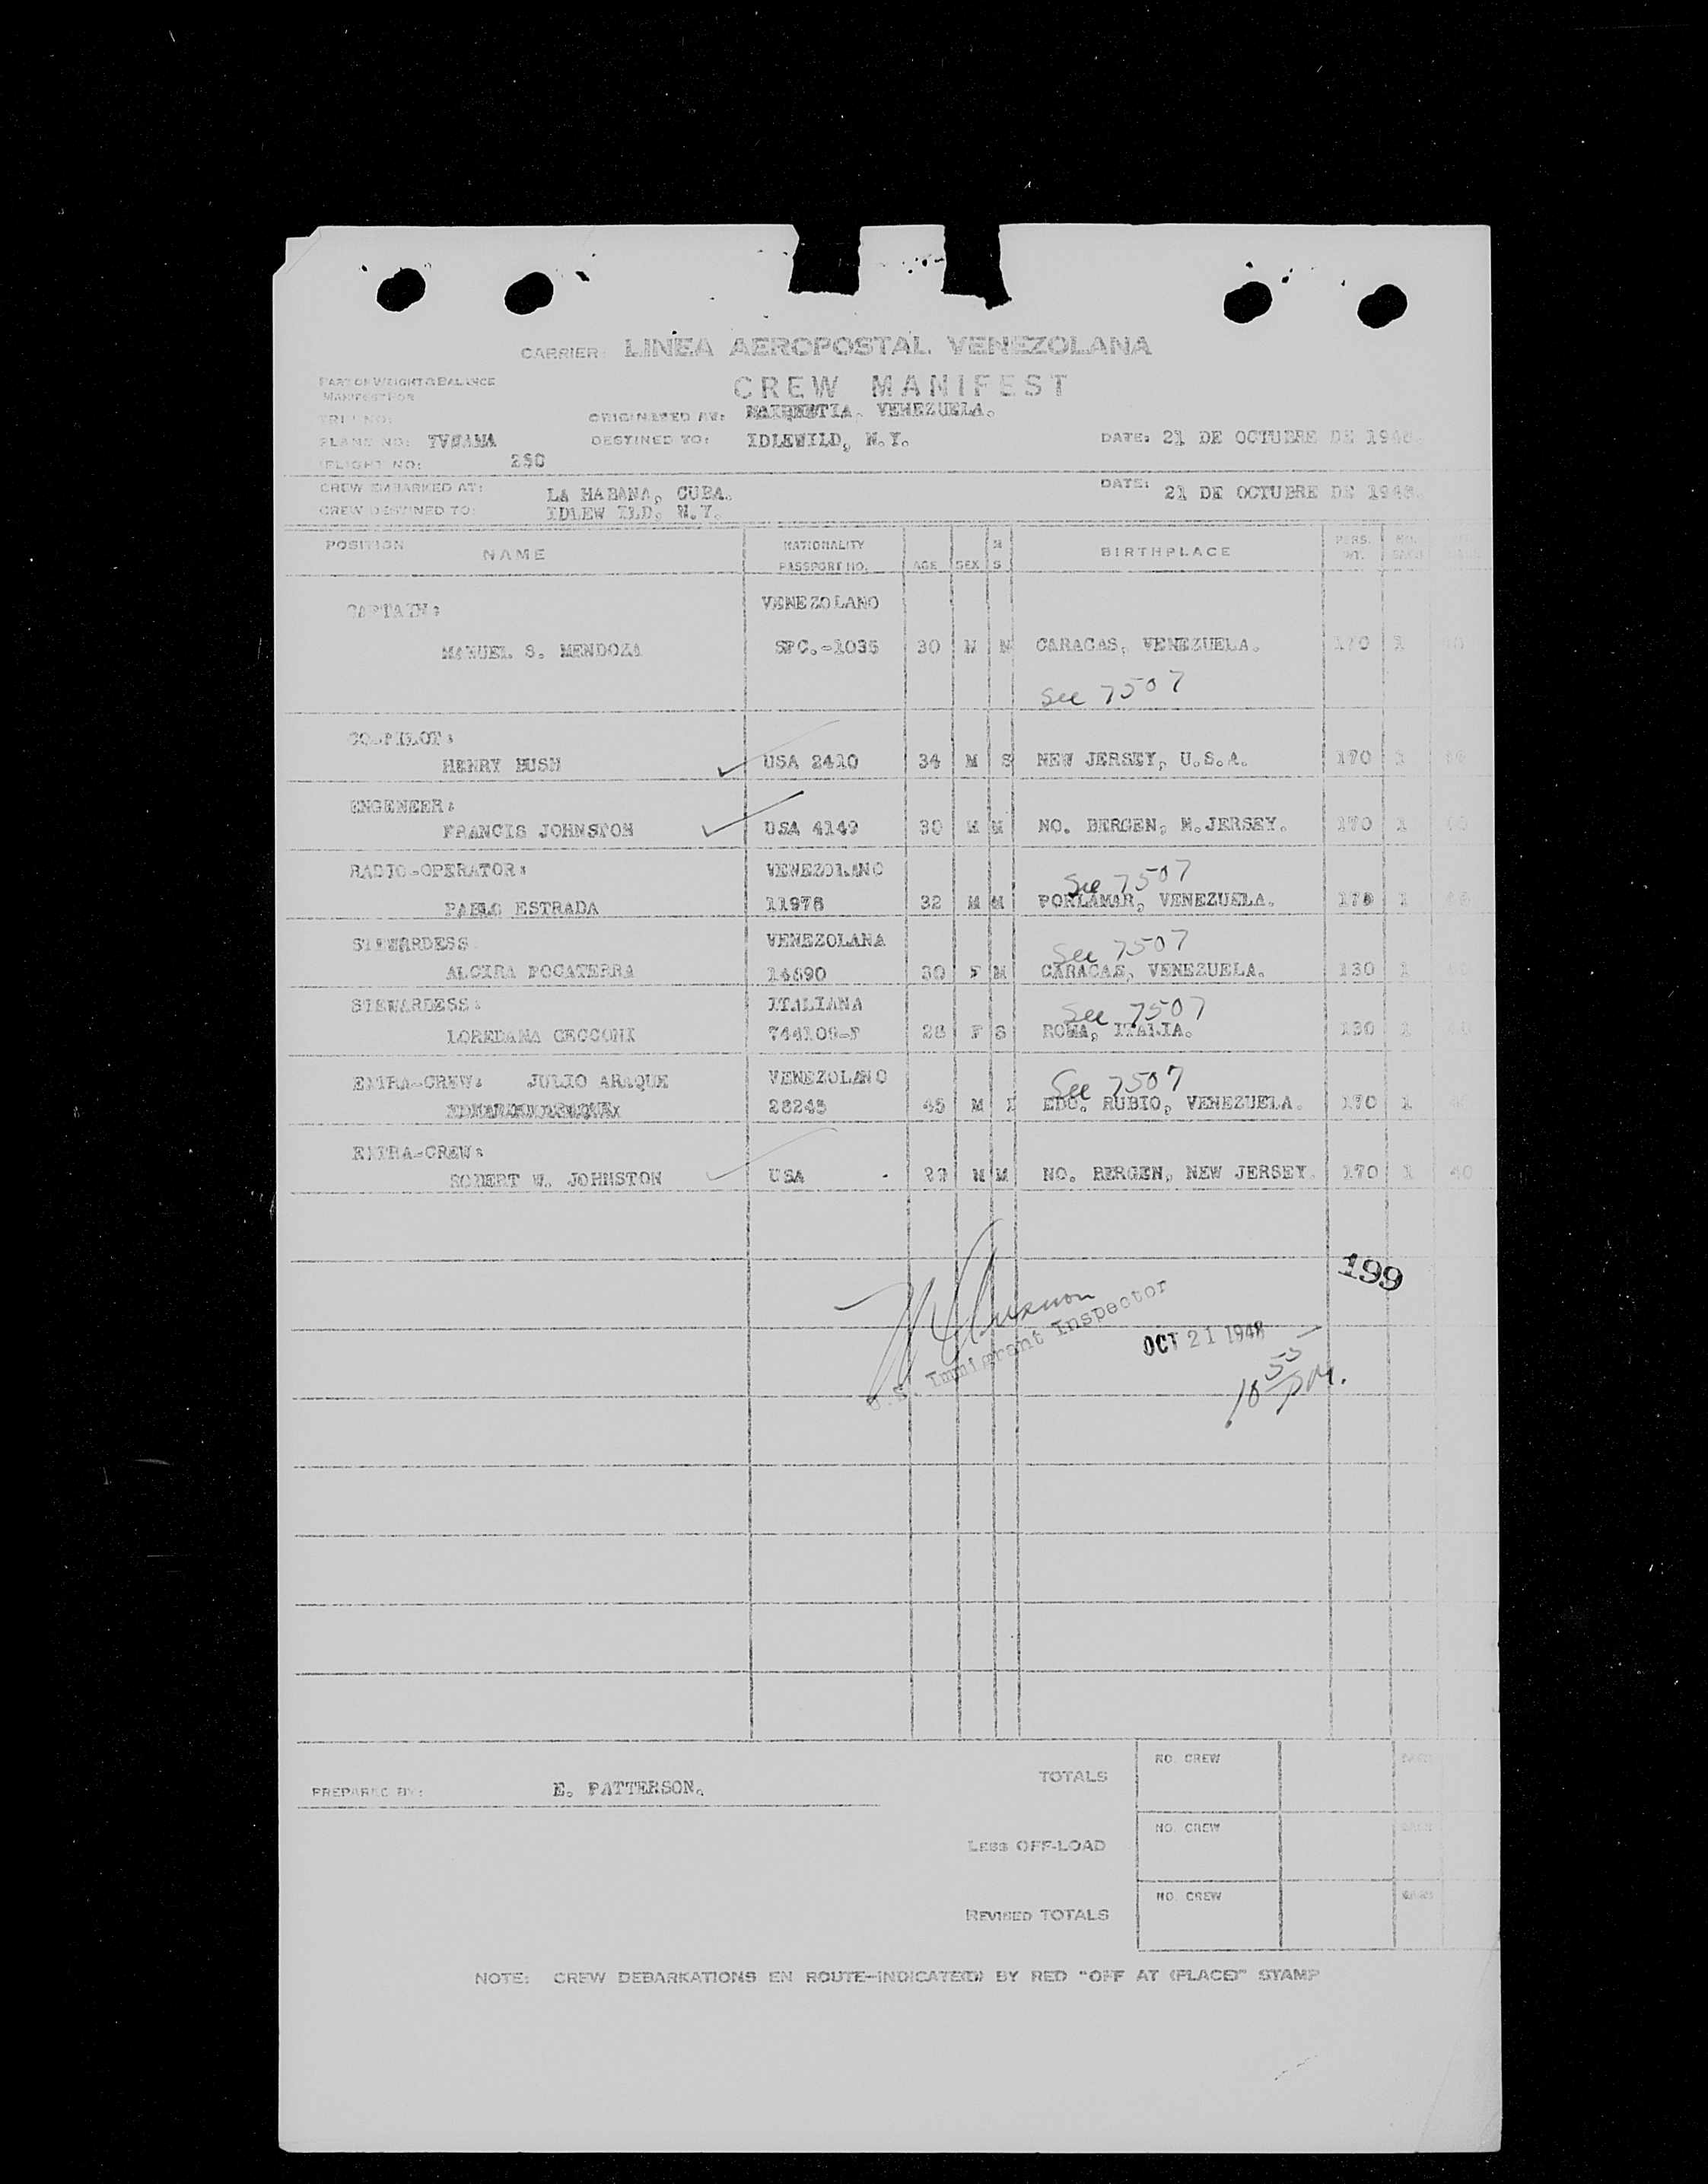 CARRIER: LINEA AEROPOSTAL VENEZOLANA
PART OF WEIGHT & BALANCE
MANIFEST FOR
CREW MANIFEST
TRIP NO:
ORIGINATED AT: MAIQUETIA, VENEZUELA.
PLANE NO:
DESTINED TO: IDLEWILD, N.Y.
DATE: 21 DE OCTUBRE DE 1948.
FLIGHT NO: 280
CREW EMBARKED AT: LA HABANA, CUBA.
DATE: 21 DE OCTUBRE DE 1948.
CREW DESTINED TO: IDLEW ILD, N.Y.
POSITION NAME NATIONALITY PASSPORT NO. AGE SEX M S BIRTHPLACE PERS. WT. NO.
CAPTAIN: VENEZOLANO
MANUEL S. MENDOZA SPC.-1035 30 M M CARACAS, VENEZUELA. 170 1
See 7507
CO-PILOT:
HENRY BUSH USA 2410 34 M S NEW JERSEY, U.S.A. 170 1
ENGENEER:
FRANCIS JOHNSTON USA 4149 30 M M NO. BERGEN, N.JERSEY. 170 1
RADIO-OPERATOR: VENEZOLANO See 7507
PABLO ESTRADA 11976 32 M M PORLAMAR, VENEZUELA. 170 1
STEWARDESS VENEZOLANA See 7507
ALCIRA POCATERRA 14690 30 F M CARACAS, VENEZUELA. 130 1
STEWARDESS: ITALIANA See 7507
LOREDANA CECCONI 744109-P 28 F S ROMA, ITALIA. 130 1
EXTRA-CREW: JULIO ARAQUE VENEZOLANO See 7507
28245 45 M EDO. RUBIO, VENEZUELA. 170 1
EXTRA-CREW:
ROBERT W. JOHNSTON USA - 29 M M NO. BERGEN, NEW JERSEY. 170 1 40
199
U.S. Immigrant Inspector
OCT 21 1948
10 55 PM.
PREPARED BY: E. PATTERSON.
TOTALS NO. CREW
LESS OFF-LOAD NO. CREW
REVISED TOTALS NO. CREW
NOTE: CREW DEBARKATIONS EN ROUTE-INDICATE(D) BY RED "OFF AT (PLACE)" STAMP